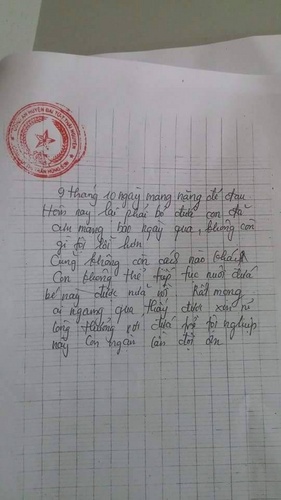 CÔNG AN HUYỆN ĐẠI TỪ T. THÁI NGUYÊN
9 tháng 10 ngày mang nặng đẻ đau
Hôm nay lại phải bỏ đứa con đã
cưu mang bao ngày qua, không còn
gì tội lỗi hơn
Cũng không còn cách nào khác
Con không thể tiếp tục nuôi đứa
bé này được nữa rồi Rất mong
ai ngang qua thấy được xin rủ
lòng thương với đứa trẻ tội nghiệp
này Con ngàn lần đội ơn